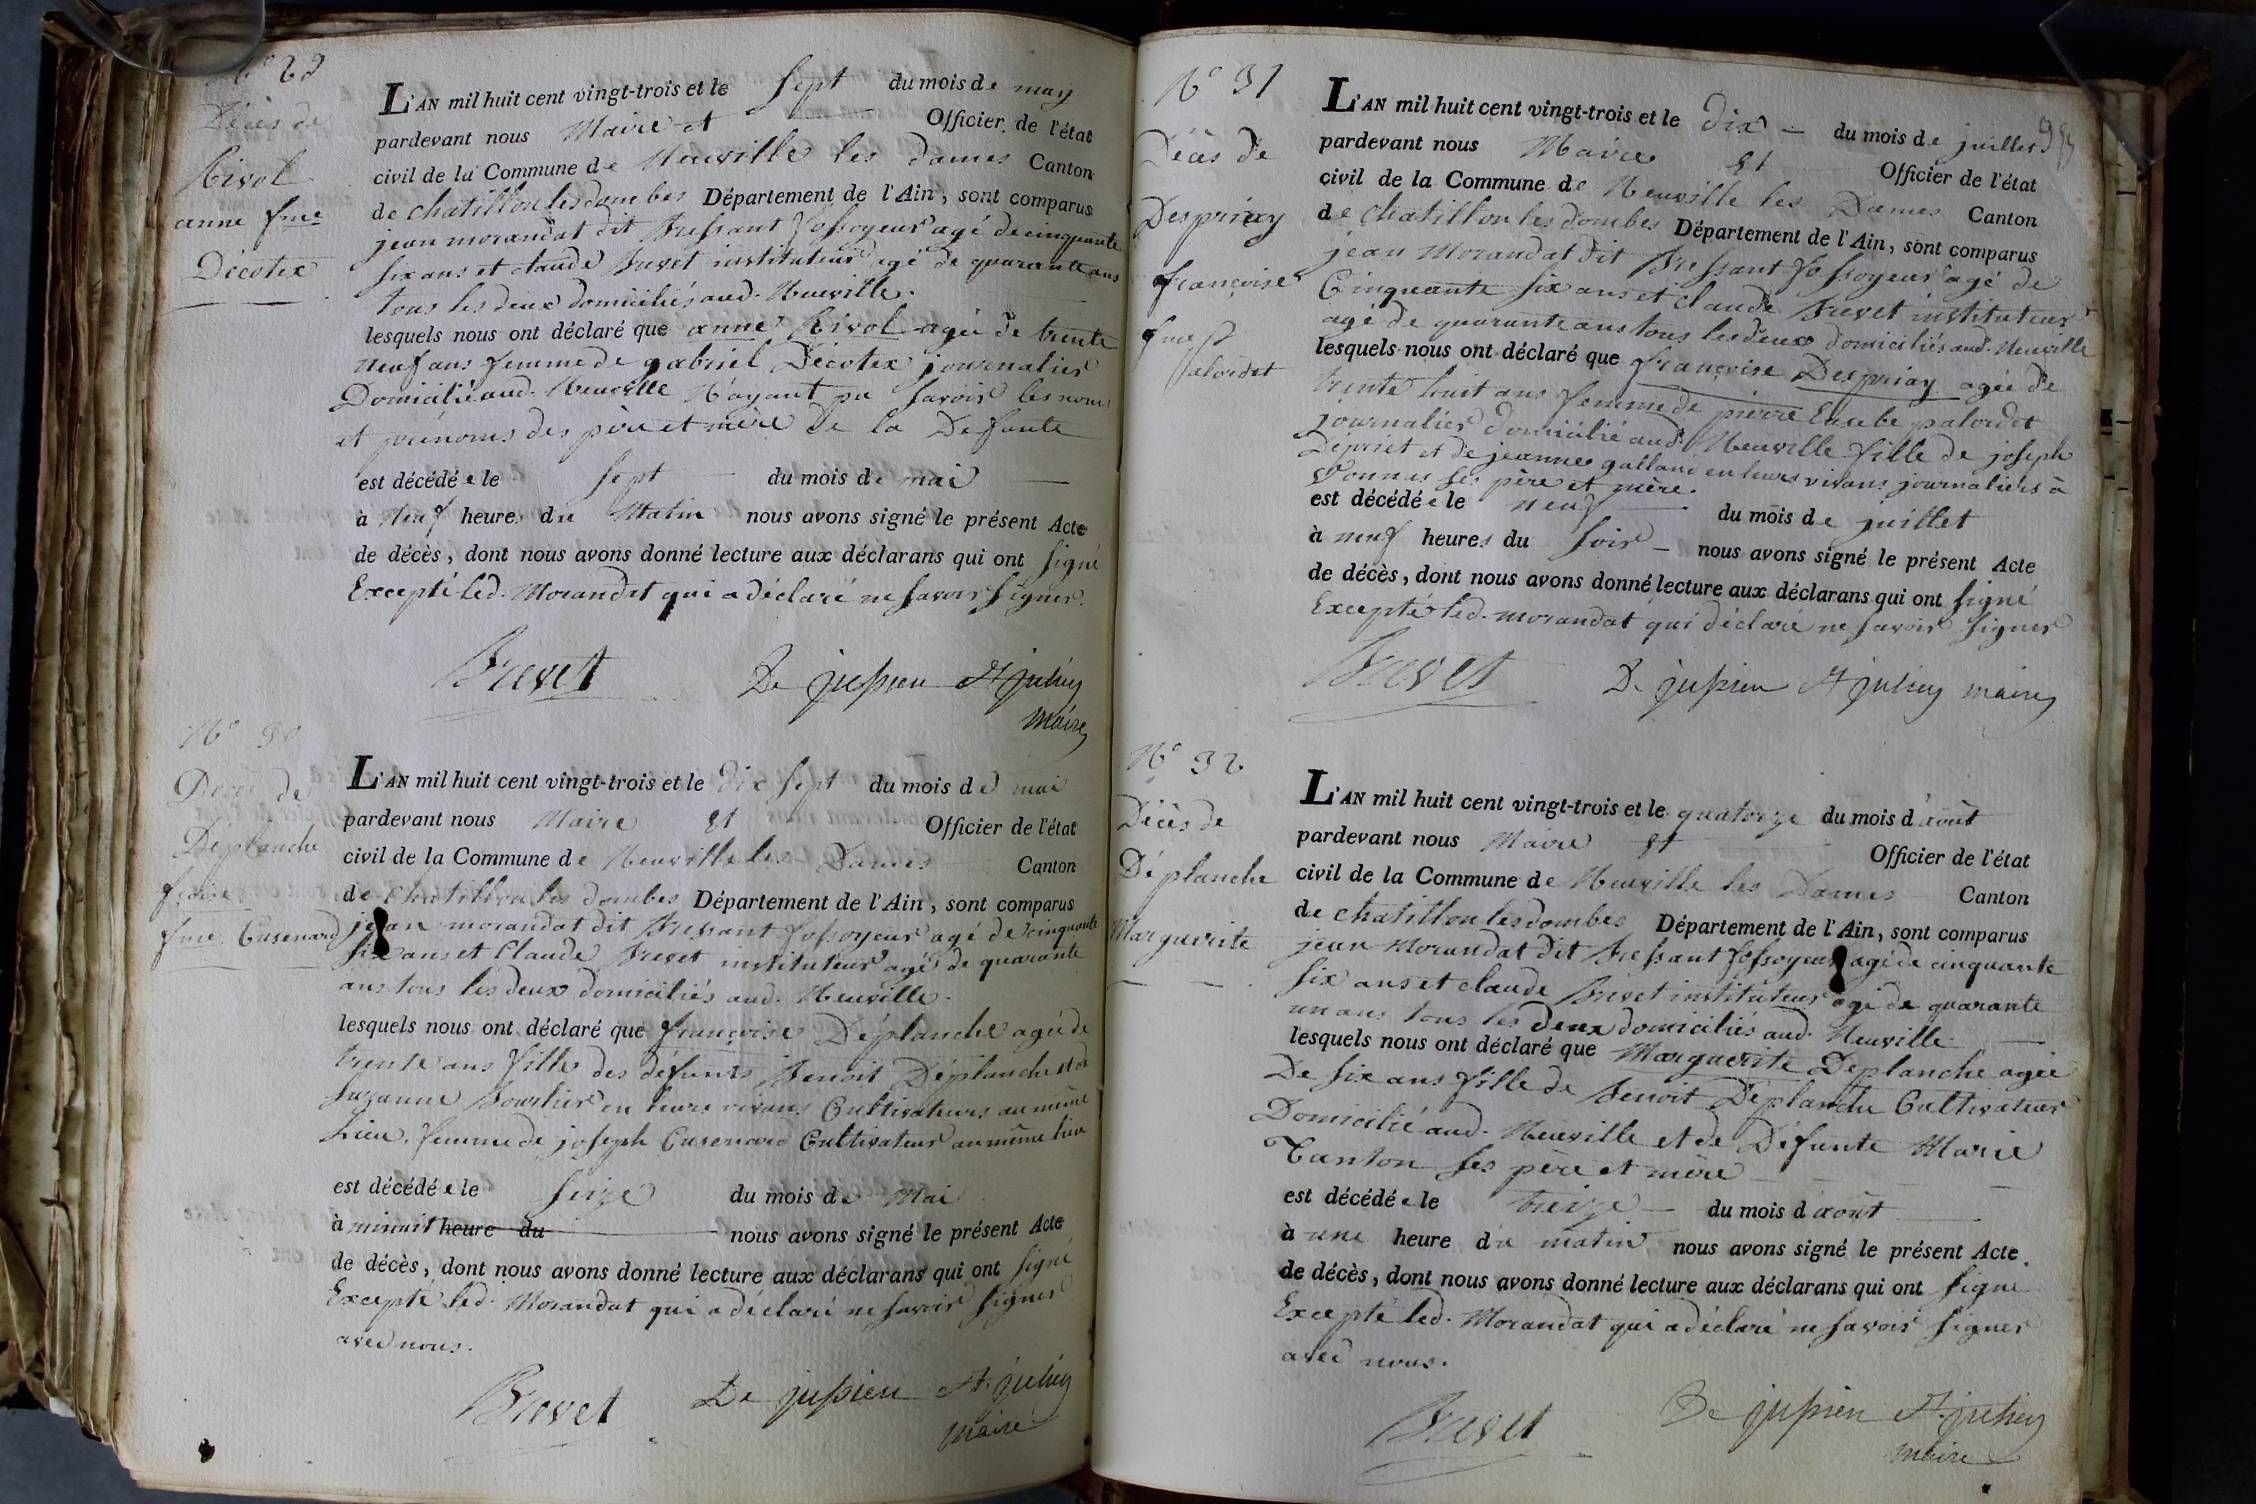 N° 29
Décès de
Rivol
anne fme
Décotex
L'AN mil huit cent vingt-trois et le sept du mois de may
pardevant nous Maire et Officier de l'état
civil de la Commune de Neuville les dames Canton
de chatillon les dombes Département de l'Ain, sont comparus
jean morandat dit Bressant fossoyeur agé de cinquante
six ans et claude Brevet instituteur agé de quarante ans
tous les deux domiciliés aud. Neuville.
lesquels nous ont déclaré que anne Rivol agée de trente
neuf ans femme de gabriel Décotex journalier
Domicilié aud. Neuville N'ayant pu savoir les noms
et prénoms des père et mère De la Défunte
est décédée le sept du mois de mai
à neuf heures du Matin nous avons signé le présent Acte
de décès, dont nous avons donné lecture aux déclarans qui ont signé
Excepté led. Morandat qui a déclaré ne savoir signer.
Brevet De jussieu St julien
maire
N° 30
Décès de
Déplanche
fçoise
fme Cusenard
L'AN mil huit cent vingt-trois et le dix sept du mois de mai
pardevant nous Maire et Officier de l'état
civil de la Commune de Neuville les Dames Canton
de Chatillon les dombes Département de l'Ain, sont comparus
jean morandat dit Bressant fossoyeur agé de cinquante
six ans et Claude Brevet instituteur agé de quarante
ans tous les deux domiciliés aud. Neuville.
lesquels nous ont déclaré que françoise Déplanche agée de
trente ans fille des défunts Benoit Déplanche et de
Suzanne Bourlier en leurs vivans Cultivateurs au même
Lieu, femme de joseph Cusenard Cultivateur au même lieu
est décédée le seize du mois de Mai
à minuit heure du nous avons signé le présent Acte
de décès, dont nous avons donné lecture aux déclarans qui ont signé
Excepté led. Morandat qui a déclaré ne savoir signer
avec nous.
Brevet De jussieu St. julien
maire
N° 31
Décès de
Despriay
françoise
fme
palordet
L'AN mil huit cent vingt-trois et le dix du mois de juillet
pardevant nous Maire et Officier de l'état
civil de la Commune de Neuville les Dames Canton
de chatillon les dombes Département de l'Ain, sont comparus
jean Morandat dit Bressant fossoyeur agé de
Cinquante six ans et claude Brevet instituteur
agé de quarante ans tous les deux domiciliés aud. Neuville
lesquels nous ont déclaré que françoise Despriay agée de
trente huit ans femme de pierre palordet
journalier domicilié aud. Neuville fille de joseph
Dépriet et de jeanne galland en leurs vivans journaliers à
Vonnas ses père et mère.
est décédée le neuf du mois de juillet
à neuf heures du soir nous avons signé le présent Acte
de décès, dont nous avons donné lecture aux déclarans qui ont signé
Excepté led. morandat qui déclaré ne savoir signer
Brevet De jussieu St julien maire
N° 32
Décès de
Déplanche
Marguerite
L'AN mil huit cent vingt-trois et le quatorze du mois d'août
pardevant nous Maire et Officier de l'état
civil de la Commune de Neuville les Dames Canton
de chatillon les dombes Département de l'Ain, sont comparus
jean Morandat dit Bressant fossoyeur agé de cinquante
six ans et claude Brevet instituteur agé de quarante
un ans tous les deux domiciliés aud. Neuville
lesquels nous ont déclaré que Marguerite Déplanche agée
De six ans fille de Benoit Déplanche Cultivateur
Domicilié aud. Neuville et de Défunte Marie
Tanton ses père et mère
est décédée le treize du mois d'août
à une heure du matin nous avons signé le présent Acte
de décès, dont nous avons donné lecture aux déclarans qui ont signé
Excepté led. Morandat qui a déclaré ne savoir signer
avec nous.
Brevet De jussieu St. julien
maire